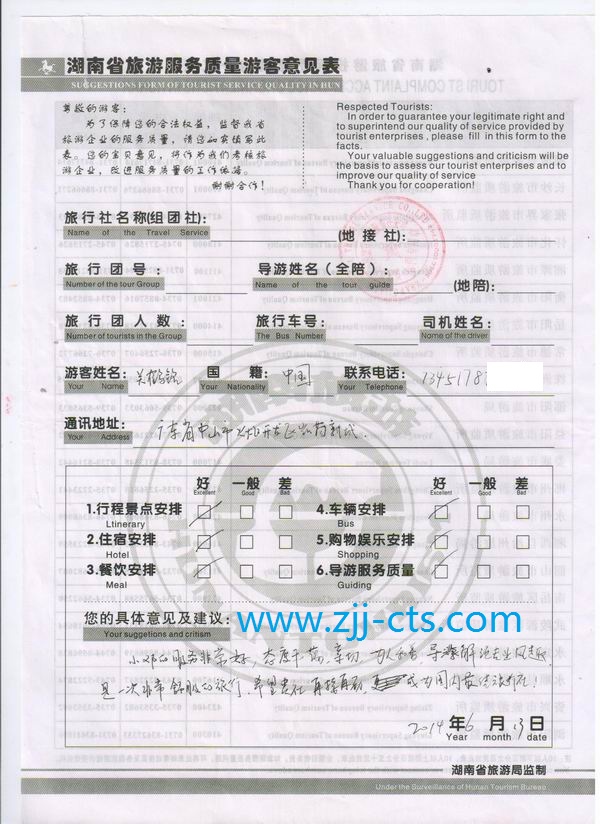 湖南省旅游服务质量游客意见表
SUGGESTIONS FORM OF TOURIST SERVICE QUALITY IN HUN
尊敬的游客:
为了保障您的合法权益,监督我省
旅游企业的服务质量,请您如实填写此
表。您的宝贵意见,将作为我们考核旅
游企业,改进服务质量的工作依据。
谢谢合作!
Respected Tourists:
In order to guarantee your legitimate right and
to superintend our quality of service provided by
tourist enterprises , please fill in this form to the
facts.
Your valuable suggestions and criticism will be
the basis to assess our tourist enterprises and to
improve our quality of service
Thank you for cooperation!
旅行社名称(组团社): (地接社):
Name of the Travel Service
旅行团号: 导游姓名(全陪): (地陪):
Number of the tour Group Name of the tour guide
旅行团人数: 旅行车号: 司机姓名:
Number of tourists in the Group The Bus Number Name of the driver
游客姓名: 国籍: 中国 联系电话: 1345178
Your Name Your Nationality Your Telephone
通讯地址: 广东省中山市
Your Address
好 一般 差 好 一般 差
Excellent Good Bad Excellent Good Bad
1.行程景点安排 4.车辆安排
Ltinerary Bus
2.住宿安排 5.购物娱乐安排
Hotel Shopping
3.餐饮安排 6.导游服务质量
Meal Guiding
您的具体意见及建议:
Your suggetions and critism
www.zjj-cts.com
小邓的服务非常好,态度 亲切,
是一次非常舒服的旅行,希望贵社再接再励, 成为国内最
2014 年 6 月 13 日
Year month date
湖南省旅游局监制
Under the Surveillance of Hunan Tourism Bureau